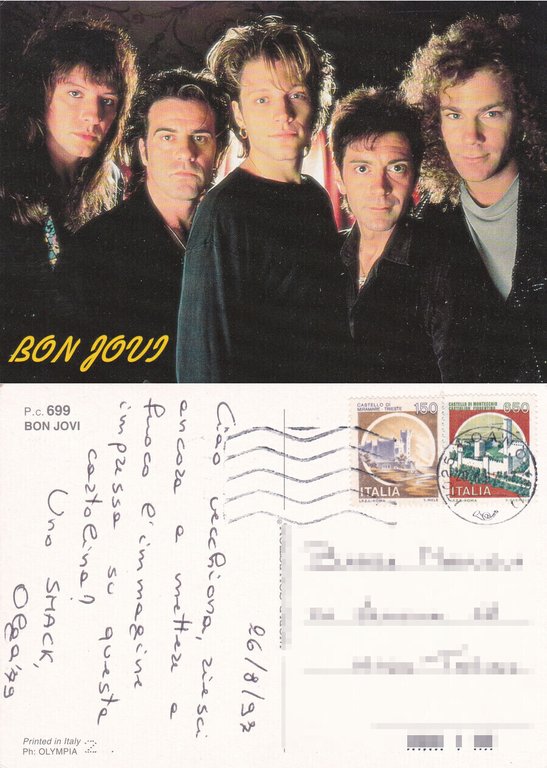 BON JOVI
P.c. 699
BON JOVI
CASTELLO DI
MIRAMARE TRIESTE
150
ITALIA
I.P.Z.S. ROMA
CASTELLO DI MONTECCHIO
650
ITALIA
I.P.Z.S. ROMA
26/8/92
Ciao vecchiona, riesci
ancora a mettere a
fuoco l'immagine
impressa su questa
cartolina?
Uno SMACK,
Olga '79
Printed in Italy
Ph: OLYMPIA